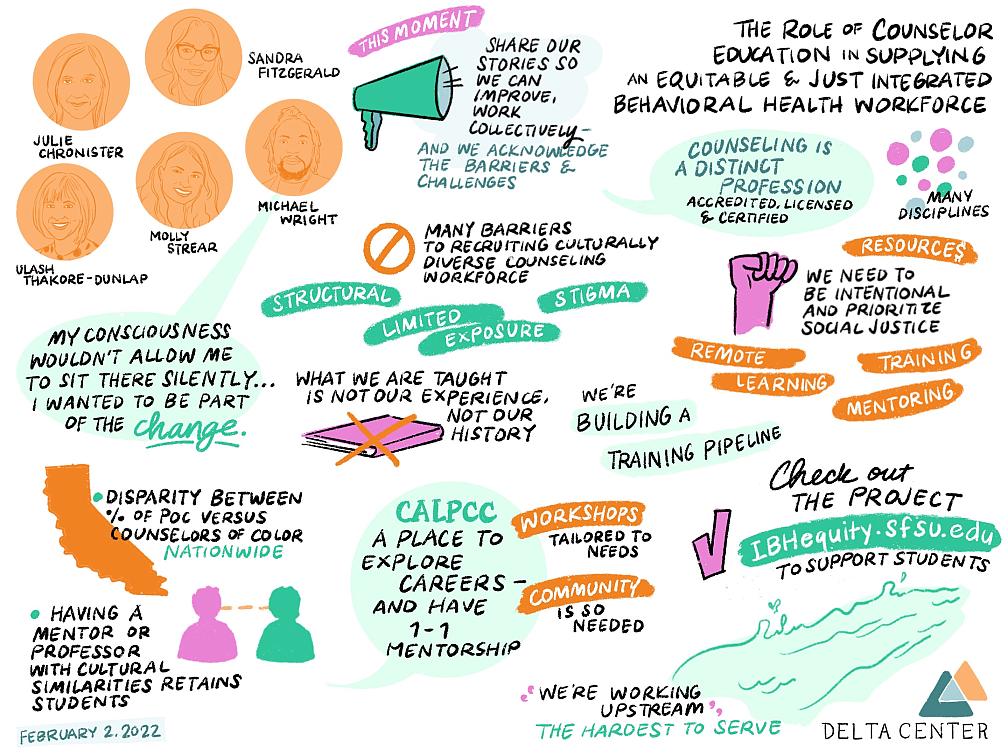 JULIE
CHRONISTER
SANDRA
FITZGERALD
ULASH
THAKORE-DUNLAP
MOLLY
STREAR
MICHAEL
WRIGHT
THIS MOMENT
SHARE OUR
STORIES SO
WE CAN
IMPROVE,
WORK
COLLECTIVELY-
AND WE ACKNOWLEDGE
THE BARRIERS &
CHALLENGES
THE ROLE OF COUNSELOR
EDUCATION IN SUPPLYING
AN EQUITABLE & JUST INTEGRATED
BEHAVIORAL HEALTH WORKFORCE
COUNSELING IS
A DISTINCT
PROFESSION
ACCREDITED, LICENSED
& CERTIFIED
MANY
DISCIPLINES
MANY BARRIERS
TO RECRUITING CULTURALLY
DIVERSE COUNSELING
WORKFORCE
STRUCTURAL
LIMITED
EXPOSURE
STIGMA
RESOURCE$
WE NEED TO
BE INTENTIONAL
AND PRIORITIZE
SOCIAL JUSTICE
REMOTE
LEARNING
TRAINING
MENTORING
MY CONSCIOUSNESS
WOULDN'T ALLOW ME
TO SIT THERE SILENTLY...
I WANTED TO BE PART
OF THE change.
WHAT WE ARE TAUGHT
IS NOT OUR EXPERIENCE,
NOT OUR
HISTORY
WE'RE
BUILDING A
TRAINING PIPELINE
• DISPARITY BETWEEN
% OF POC VERSUS
COUNSELORS OF COLOR
NATIONWIDE
• HAVING A
MENTOR OR
PROFESSOR
WITH CULTURAL
SIMILARITIES RETAINS
STUDENTS
CALPCC
A PLACE TO
EXPLORE
CAREERS-
AND HAVE
1-1
MENTORSHIP
WORKSHOPS
TAILORED TO
NEEDS
COMMUNITY
IS SO
NEEDED
Check out
THE PROJECT
IBHequity.sfsu.edu
TO SUPPORT STUDENTS
"WE'RE WORKING
UPSTREAM"
THE HARDEST TO SERVE
FEBRUARY 2.2022
DELTA CENTER